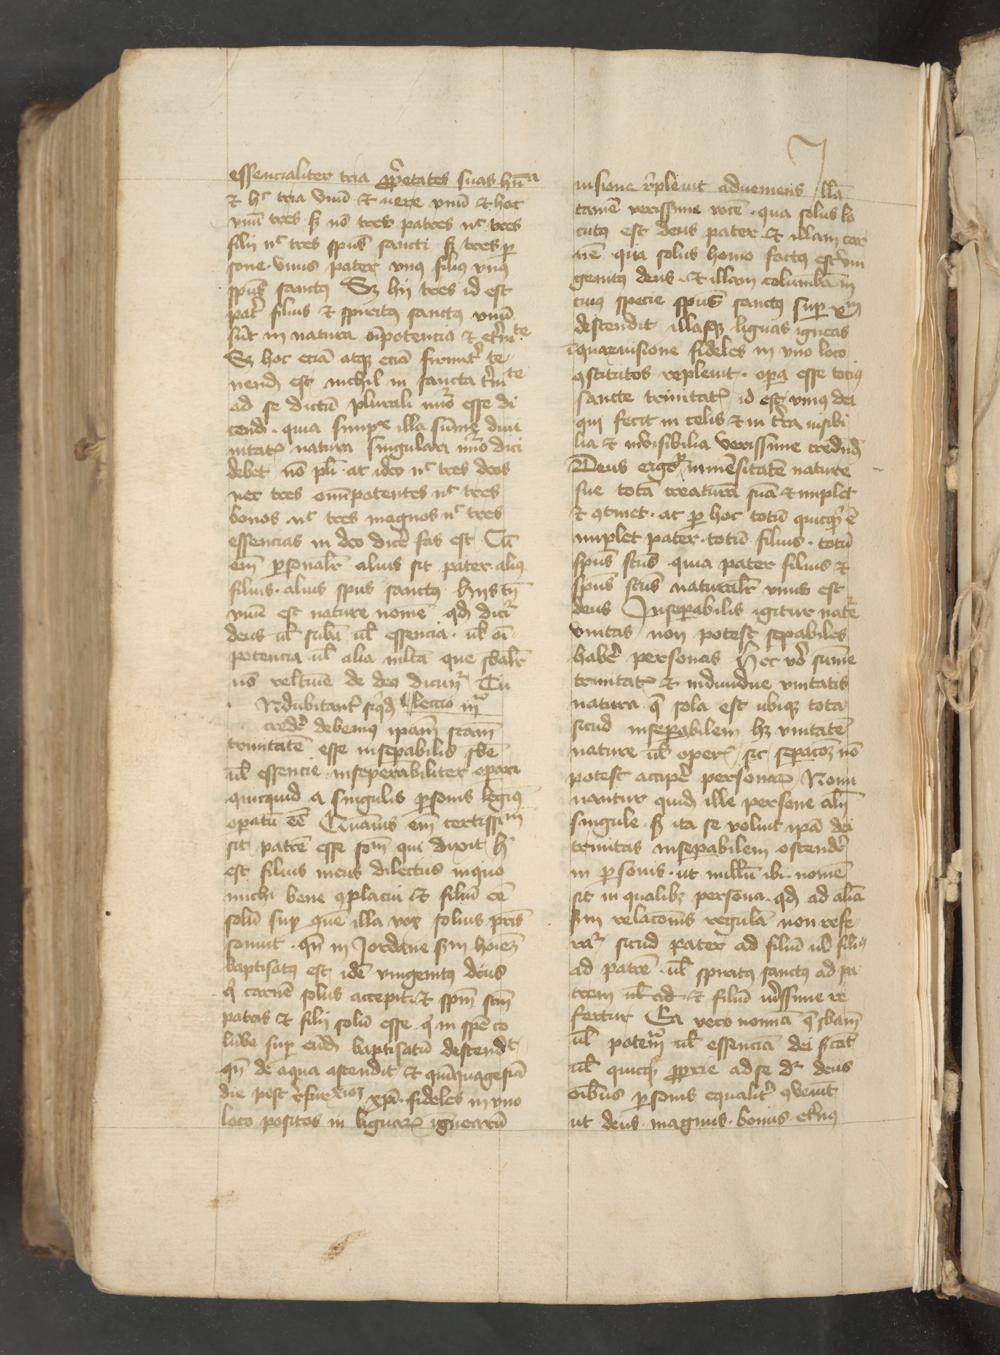 essencialiter tria ꝓp̄etates suas hn̄a
⁊ hͨ tria vnū ⁊ uere vnū ⁊ hoc
vnū tres sꝫ nō tres patres nͨ tres
filij nͨ tres spūs sancti sꝫ tres ꝑ
sone · vnus pater vnꝯ filiꝯ vnꝯ
spūs sanctꝯ Sꝫ hij tres id est
pat̉ filius ⁊ spiritꝯ sanctꝯ vnū
sūt in natura oīpotencia ⁊ et̉nite
Sꝫ hoc eciā atqꝫ eciā firmit̉ te
nendū est nichil in sancta t̉nite
ad se dictū plurali nūo esse di
cendū · quia simplex illa sūme diui
nitatꝭ natura singulari nūo dici
debet nō pl̄i · at ideo nͨ tres deos
nec tres omīpotentes nͨ tres
bonos · nͨ tres magnos nͨ tres
essencias in deo dice fas est Cū
em̄ ꝑsonalr̄ alius sit pater aliꝯ
filius · alius spūs sanctꝯ hijs tn̄
vnū est nature nomē qd̄ dicit̉
deus ul̄ sub̄a ul̄ essencia · ul̄ oī
potencia ul̄ alia ml̄ta que sb̄alr̄
nō relatiue de deo dicunt̉ Tu
Ndubitant̉ siqͥd lectio iijᵃ
credē debemꝯ ipam̄ scām
trinitatē esse insepabilis sb̄e
ul̄ essencie · inseperabiliter oꝑari
quicquid a singulis ꝑsonis legiꝯ
oꝑatū eē Quāuis em̄ certissim
sit patrē esse solū qui dixit hͨ
est filius meus dilectus in quo
michi bene ꝯplacui ⁊ filiū eē
solū suꝑ quē illa vox solius pr̄is
sonuit · qn̄ in Jordane sm̄ hoīeꝫ
baptisatꝯ est idē vnigenitꝯ deus
qͥ carnē solus accepit · ⁊ spm̄ scm̄
patris ⁊ filij solū esse · qͥ in spē co
lūbe suꝑ eūdē baptisatū descendit
qn̄ de aqua ascendit ⁊ qn̄quagesīa
die post resurxioꝫ xp̄i · fideles in vno
loco positos in liguarꝫ ignearū
uisione repleuit adueniens Illā
tamē verissime vocē · qua solus lo
cutꝯ est deus pater · ⁊ illam car
nē qua solus homo factꝯ est vni
genitꝯ deus · ⁊ illam columbā in
cuiꝯ specie spūs sanctꝯ suꝑ xpm̄
descendit illasqꝫ liguas igneas
ī quarum uisione fideles in vno loco
ꝯstitutos repleuit · oꝑa esse tociꝯ
sancte trinitatꝭ id est vniꝯ dei
qui fecit in celis ⁊ in t̉ra uisibi
lia ⁊ inuisibilia verissime credendū
Deus ergo īmēsitatē nature
sue totā creaturā suā ⁊ implet
⁊ ꝯtinet · ac ꝑ hoc totū quicqͥd ē
implet pater · totū filius · totū
spūs scūs quia pater filius ⁊
spūs scūs naturalr̄ vnus est
deus Insepabilis igitur nate
vnitas non potest sepabiles
habē personas Hec vͦ sūme
trinitatꝭ ⁊ indiuidue vnitatis
natura qͤ sola est ubiqꝫ tota
sicud insepabilem hꝫ vnitatē
nature ul̄ operꝭ sic sepacōꝫ nō
potest accipē personarꝫ Nomi
nantur quidē ille persone aliqn̄
singule · sꝫ ita se voluit ip̄a dei
trinitas insepabilem ostendē
in ꝑsonis · ut nullū ibi nomē
sit in qualibꝫ persona · qd̄ ad aliā
sm̄ relacōnis regulā non refe
rat̉ sicud pater ad filiū ul̄ filiꝯ
ad patrē · ul̄ spiritꝯ sanctꝯ ad pa
trem ul̄ ad ⁊ filiū v̉issime re
fertur Ea vero nomīa qͤ sb̄am
ul̄ potenciā ul̄ essenciā dei sīcāt
ul̄ quicqͥd ꝓprie ad se dͬ deus
oībus ꝑsonis equalit̉ ꝯueniūt
ut deus · magnus · bonus · et̉nꝯ